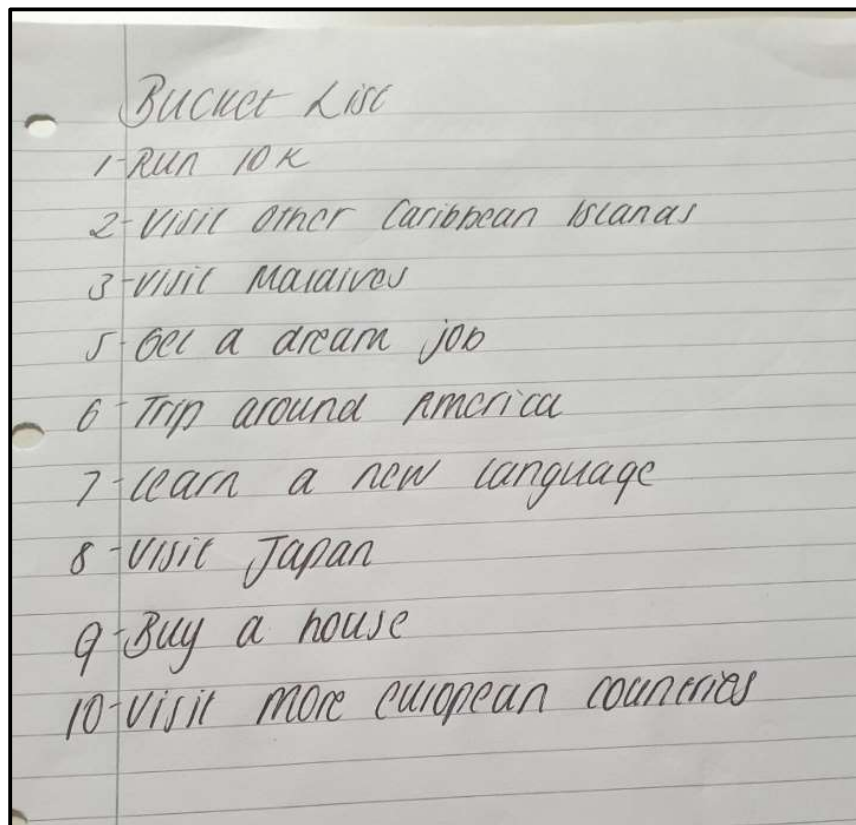 Bucket List
1- Run 10K
2- Visit other Caribbean Islands
3- Visit Maldives
5- Get a dream job
6- Trip around America
7- learn a new language
8- Visit Japan
9- Buy a house
10- Visit more european countries